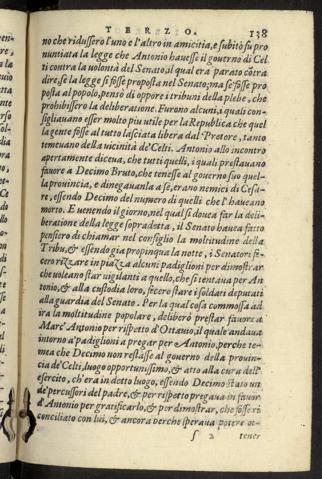 TERZO. 138
no che ridussero l'uno e l'altro in amicitia, e subitò fu pro
nuntiata la legge che Antonio hauesse il gouerno di Cel
ti contra la volontà del Senato, il qual era parato còtra
dire, se la legge si fosse proposta nel Senato; ma se fosse pro
posta al popolo, pensò di oppore i tribuni della plebe, che
prohibissero la deliberatione. Furono alcuni, i quali con-
sigliauano esser molto piu utile per la Republica che quel
la gente fosse al tutto lasciata libera dal Pretore, tanto
temeuano della vicinità de' Celti. Antonio allo incontro
apertamente diceua, che tutti quelli, i quali prestauano
fauore à Decimo Bruto, che tenesse al gouerno suo quel-
la prouincia, e dinegauanla à se, erano nemici di Cesa-
re, essendo Decimo del numero di quelli che l'haueano
morto. E uenendo il giorno, nel qual si doueа far la deli-
beratione della legge sopradetta, il Senato hauea fatto
pensiero di chiamar nel consiglio la moltitudine della
Tribu, & essendo gia propinqua la notte, i Senatori fe-
cero rizzare in piazza alcuni padiglioni per dimostrar
che uoleano star uigilanti a quello, che si tentaua per An
tonio, & alla custodia loro, fecero stare i soldati deputati
alla guardia del Senato. Per la qual cosa commossa ad
ira la moltitudine popolare, deliberò prestar fauore a
Marc' Antonio per rispetto d'Ottauio, il quale andaua
intorno a' padiglioni a pregar per Antonio, perche te-
mea che Decimo non restasse al gouerno della prouin-
cia de' Celti, luogo opportunissimo, & atto alla cura dell'
esercito, ch'era in detto luogo, essendo Decimo stato un
de' percussori del padre, & per rispetto pregaua in fauor
d'Antonio per gratificarlo, & per dimostrar, che fosse ri
conciliato con lui, & ancora perche speraua potere ot-
s 2 tener